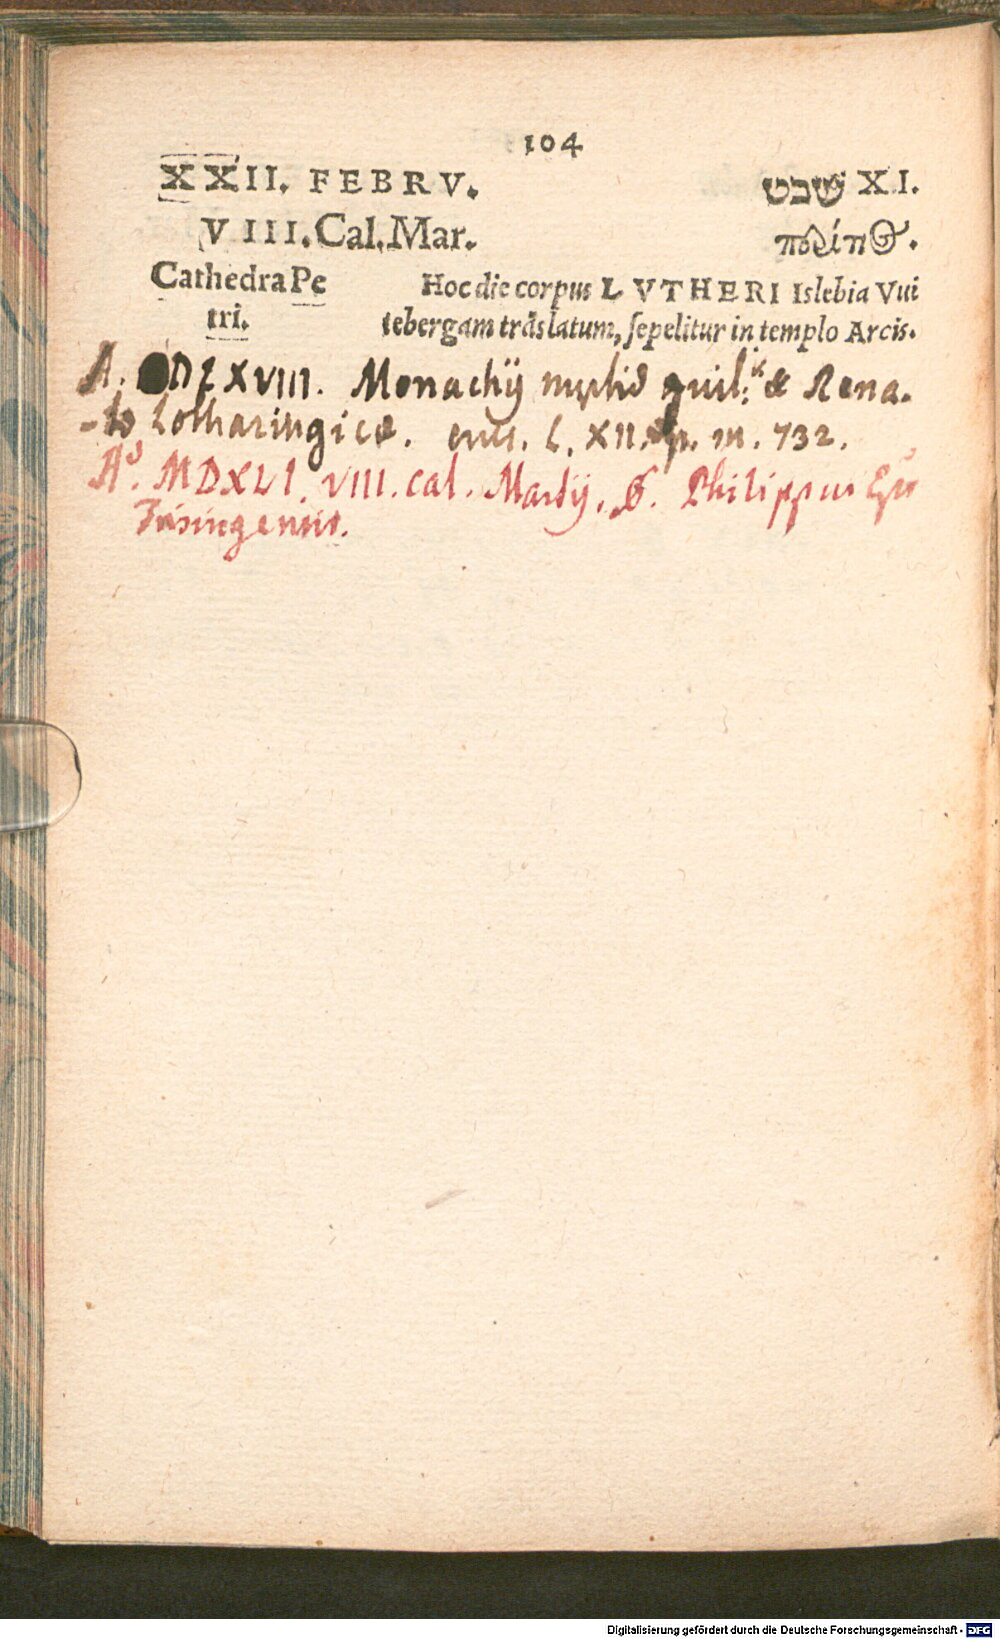 104
XXII. FEBRV. שבט XI.
VIII. Cal. Mar.
Cathedra Pe Hoc die corpus LVTHERI Islebia Vui
tri. tebergam trãslatum, sepelitur in templo Arcis.
A. DLXVIII. Monachij guil: & Rena-
-to Lotharingicæ. L. XII. p. m. 732.
Aº. MDXLI. VIII. cal. Martij, Philippus
Frisingensis.
Digitalisierung gefördert durch die Deutsche Forschungsgemeinschaft - DFG